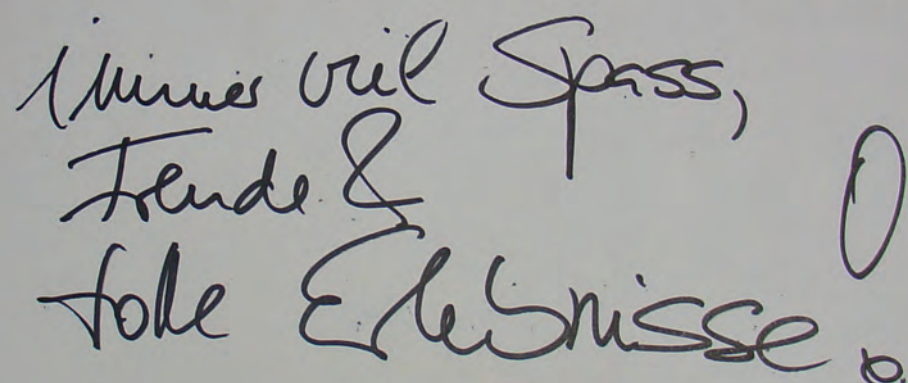 Immer viel Spass,
Freude &
tolle Erlebnisse!